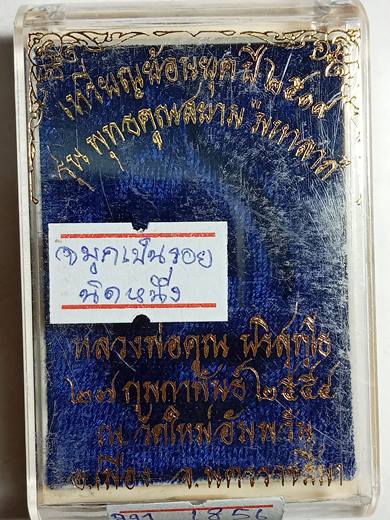 เหรียญย้อนยุค ปี ๒๕๑๙
รุ่น พุทธคูณสยาม
จมูกเป็นรอย
นิดหนึ่ง
หลวงพ่อคูณ ปริสุทโธ
๒๗ กุมภาพันธ์ ๒๕๕๔
ณ วัดใหม่อัมพวัน
อ.เมือง จ.นครราชสีมา
1856